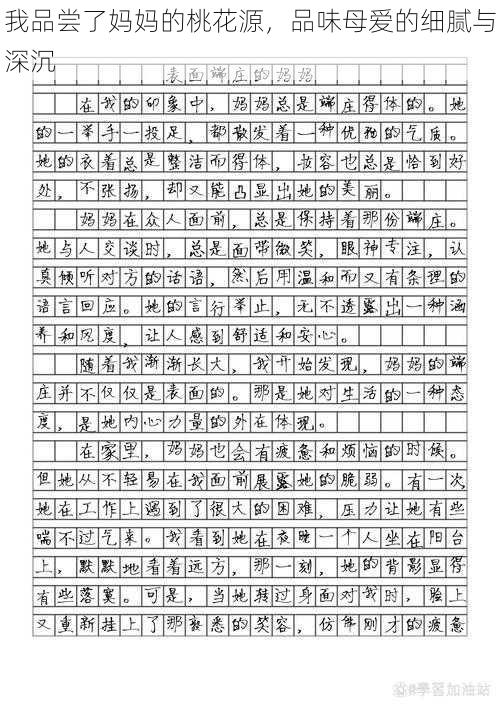 我品尝了妈妈的桃花源，品味母爱的细腻与
深沉
表面端庄的妈妈
在我的印象中，妈妈总是端庄得体的。她
的一举手一投足，都散发着一种优雅的气质。
她的衣着总是整洁而得体，妆容也总是恰到好
处，不张扬，却又能凸显出她的美丽。
妈妈在众人面前，总是保持着那份端庄。
她与人交谈时，总是面带微笑，眼神专注，认
真倾听对方的话语，然后用温和而又有条理的
语言回应。她的言行举止，无不透露出一种涵
养和风度，让人感到舒适和安心。
随着我渐渐长大，我开始发现，妈妈的端
庄并不仅仅是表面的。那是她对生活的一种态
度，是她内心力量的外在体现。
在家里，妈妈也会有疲惫和烦恼的时候。
但她从不轻易在我面前展露她的脆弱。有一次，
她在工作上遇到了很大的困难，压力让她有些
喘不过气来。我看到她在夜晚一个人坐在阳台
上，默默地看着远方，那一刻，她的背影显得
有些落寞。可是，当她转过身面对我时，脸上
又重新挂上了那熟悉的笑容，仿佛刚才的疲惫
學習加油站